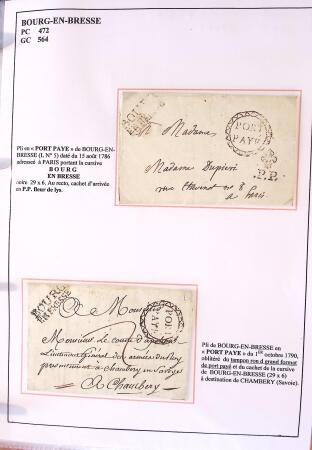 BOURG-EN-BRESSE
PC 472
GC 564
Pli en « PORT PAYE » de BOURG-EN-
BRESSE (L N° 5) daté du 15 août 1786
adressé à PARIS portant la cursive
BOURG
EN BRESSE
noire 29 x 6. Au recto, cachet d'arrivée
en P.P. fleur de lys.
BOURG
EN BRESSE
PORT
PAYE
A Madame
Madame
rue
n° 8
a Paris
P.P.
BOURG
EN BRESSE
PORT
PAYE
A Monsieur
Monsieur Le comte
Lieutenant Général des armées du Roy
presentement a Chambery en Savoye
A Chambery
Pli de BOURG-EN-BRESSE en
« PORT PAYE » du 1er octobre 1790,
oblitéré du tampon rond grand format
de port payé et du cachet de la cursive
de BOURG-EN-BRESSE (29 x 6)
à destination de CHAMBERY (Savoie).